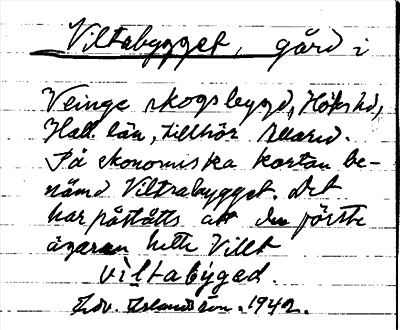 Viltabygget, gård i
Veinge skogsbygd, Höks hd,
Hall. län, tillhör
På ekonomiska kartan be-
nämd Viltrabygget. Det
har påståtts att den förste
ägaren hette Villt
viltabyged.
1942.